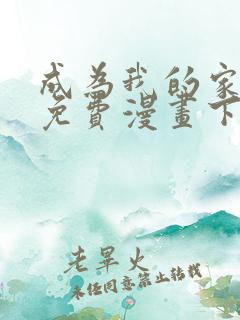 成為我的家
免費漫畫下
老畢火
未经同意禁止转载